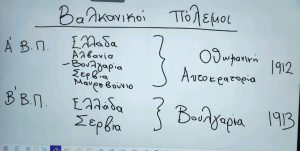 Βαλκανικοί Πόλεμοι
Α' Β.Π. Ελλάδα
Αλβανία
Βουλγαρία
Σερβία
Μαυροβούνιο
Οθωμανική
Αυτοκρατορία
1912
Β' Β.Π. Ελλάδα
Σερβία
Βουλγαρία 1913